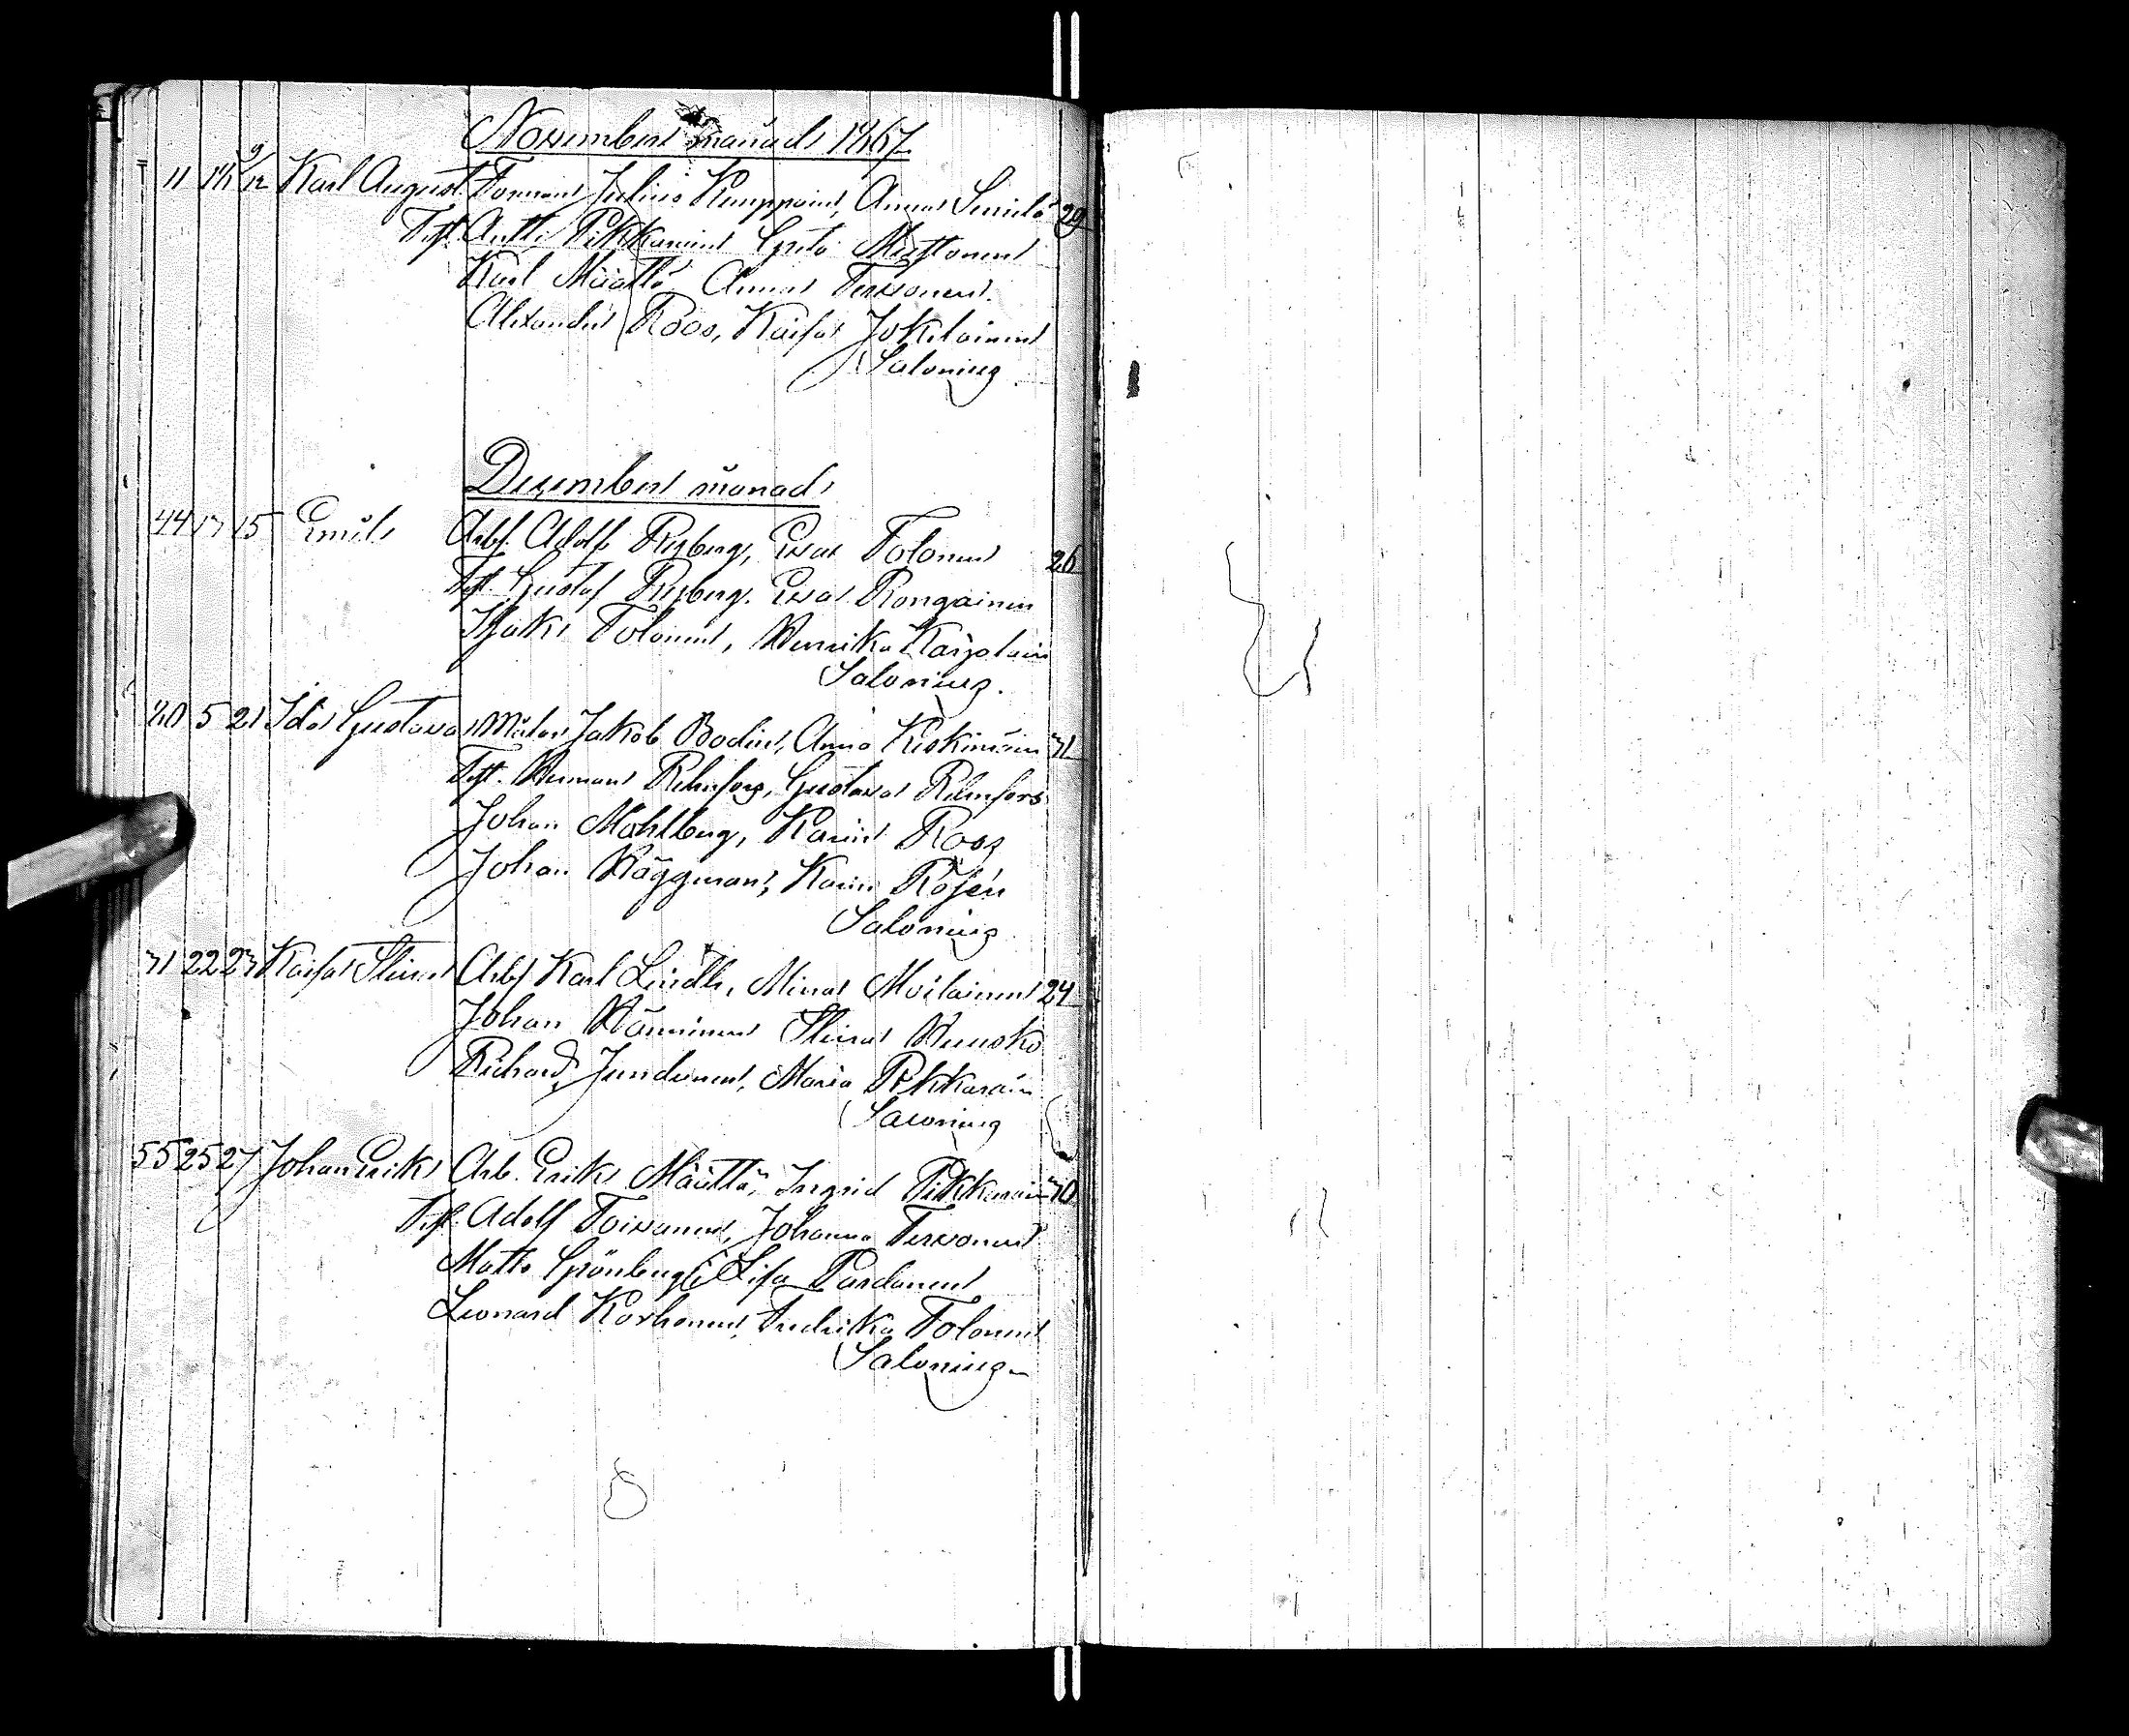 November månad 1867
11 18/11 9/12 Karl August Formans Julius Kemppains, Anna Seppälä 29
Test. Antti Pikkarainen Greta Mustonen
Karl Määttä Anna Tervonen.
Alexander Roos, Kaisa Jokelainen
Salonius
December månad
44 13 15 Emil Arb. Adolf Ryberg, Eva Tolonen 26
Test. Gustaf Ryberg. Eva Rongainen
Isak Tolonen, Henrika Karjalain
Salonius.
20 5 21 Ida Gustava Målar Jakob Bodin, Anna Keskinäin 31
Test. Herman Relmfors, Gustava Relmfors
Johan Mahlberg, Karin Roos
Johan Häggman, Karin Rosén
Salonius
31 22 23 Kaisa Stina Arb. Karl Lindh, Mina Moilainen 24
Johan Hänninen Stina Huusko
Richard Jundunen, Maria Pikkarain
Salonius
55 25 27 Johan Erik Arb. Erik Määttä, Ingrid Pikkarain 30
Test. Adolf Toivanen, Johanna Tervonen
Matts Grönberg Lisa Pardanen
Leonard Korhonen, Fredrika Tolonen
Salonius